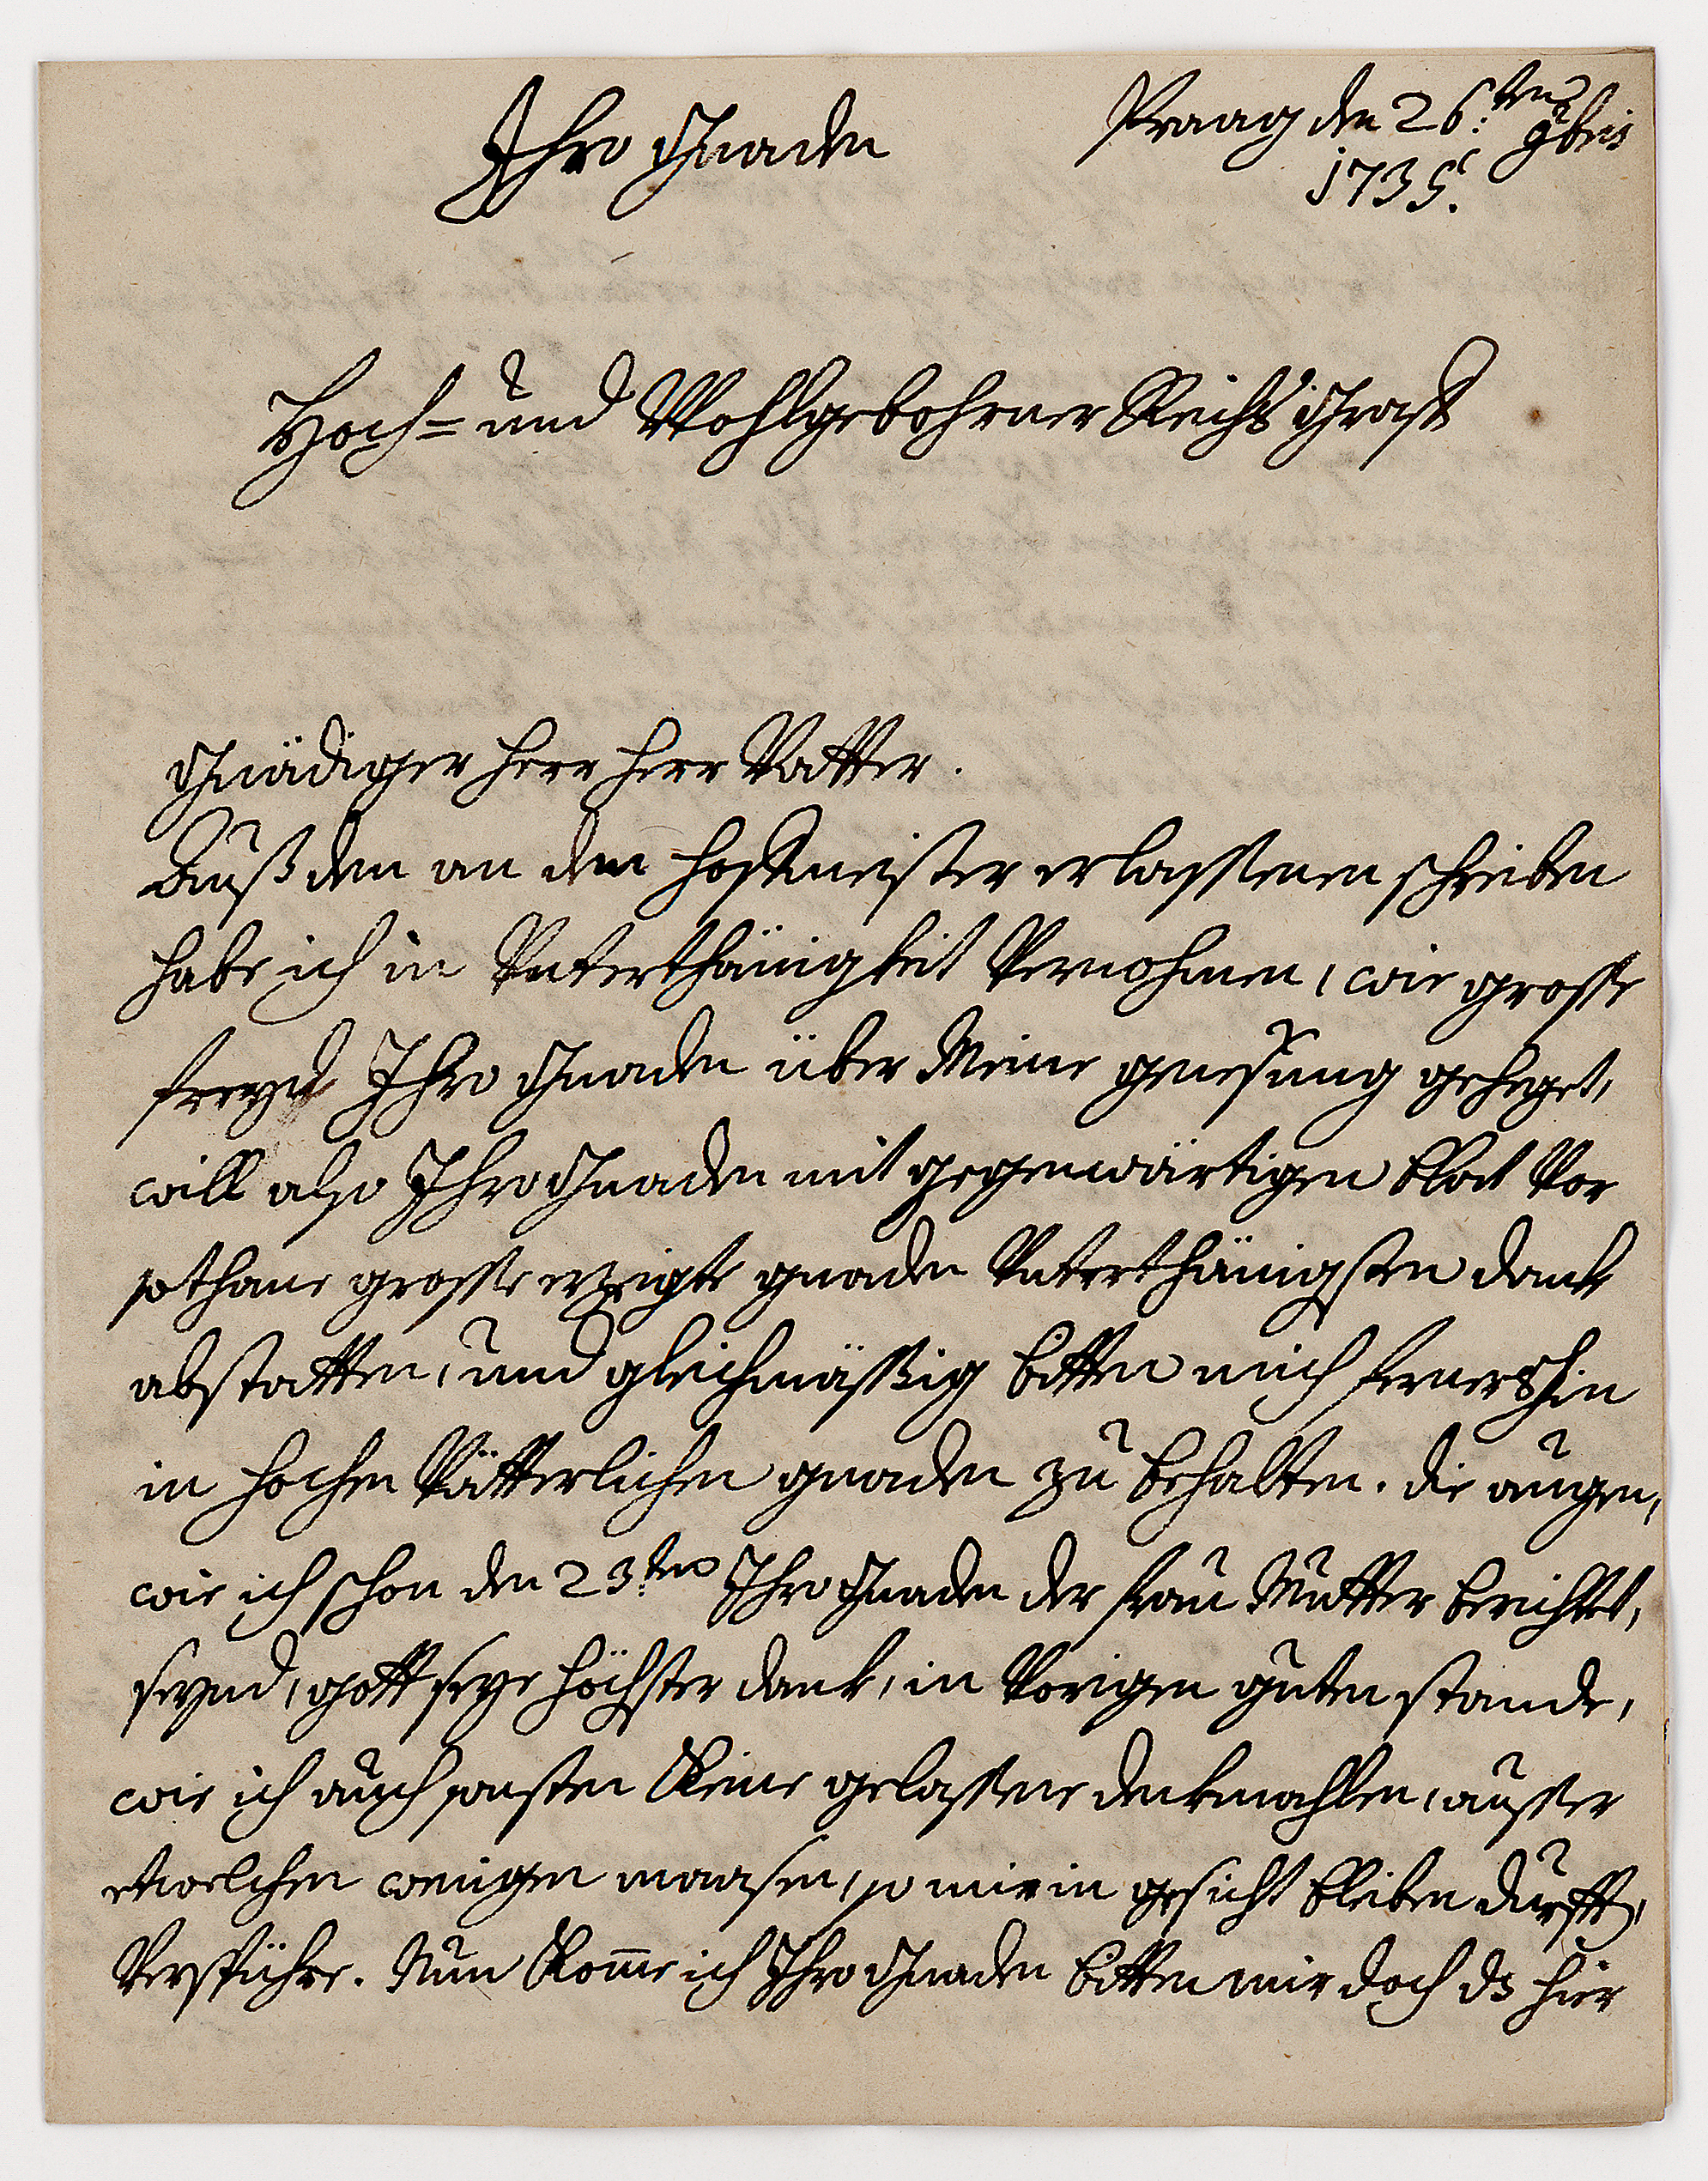 Praag den 26:ten 9bris
1735.
Ihro Gnaden
Hoch= und Wohlgebohrner Reichs Graff
Gnädiger Herr Herr Vatter.
Auß den an den hoffmeister erlassenen schreiben
habe ich in Unterthänigkeit Vernohmen, wie grosse
freyd Ihro Gnaden über Meine genesung geheget,
will also Ihro Gnaden mit gegenwärtigen blat Vor
sothane grosse erzeigte gnaden Unterthänigsten dank
abstatten, und gleichmässig bitten mich fernershin
in hochen Vätterlichen gnaden zu behalten. die augen,
wie ich schon den 23:ten Ihro Gnaden der frau Mutter berichtet,
seynd, gott seye höchster dank, in Vorigen guten stande,
wie ich auch sonsten Keine gelassene denkmahlen, ausser
etwelchen wenigen maasen, so mir in gesicht bleiben durfften,
Verspühre. Nun Kom̄e ich Ihro Gnaden bitten mir doch ds hier